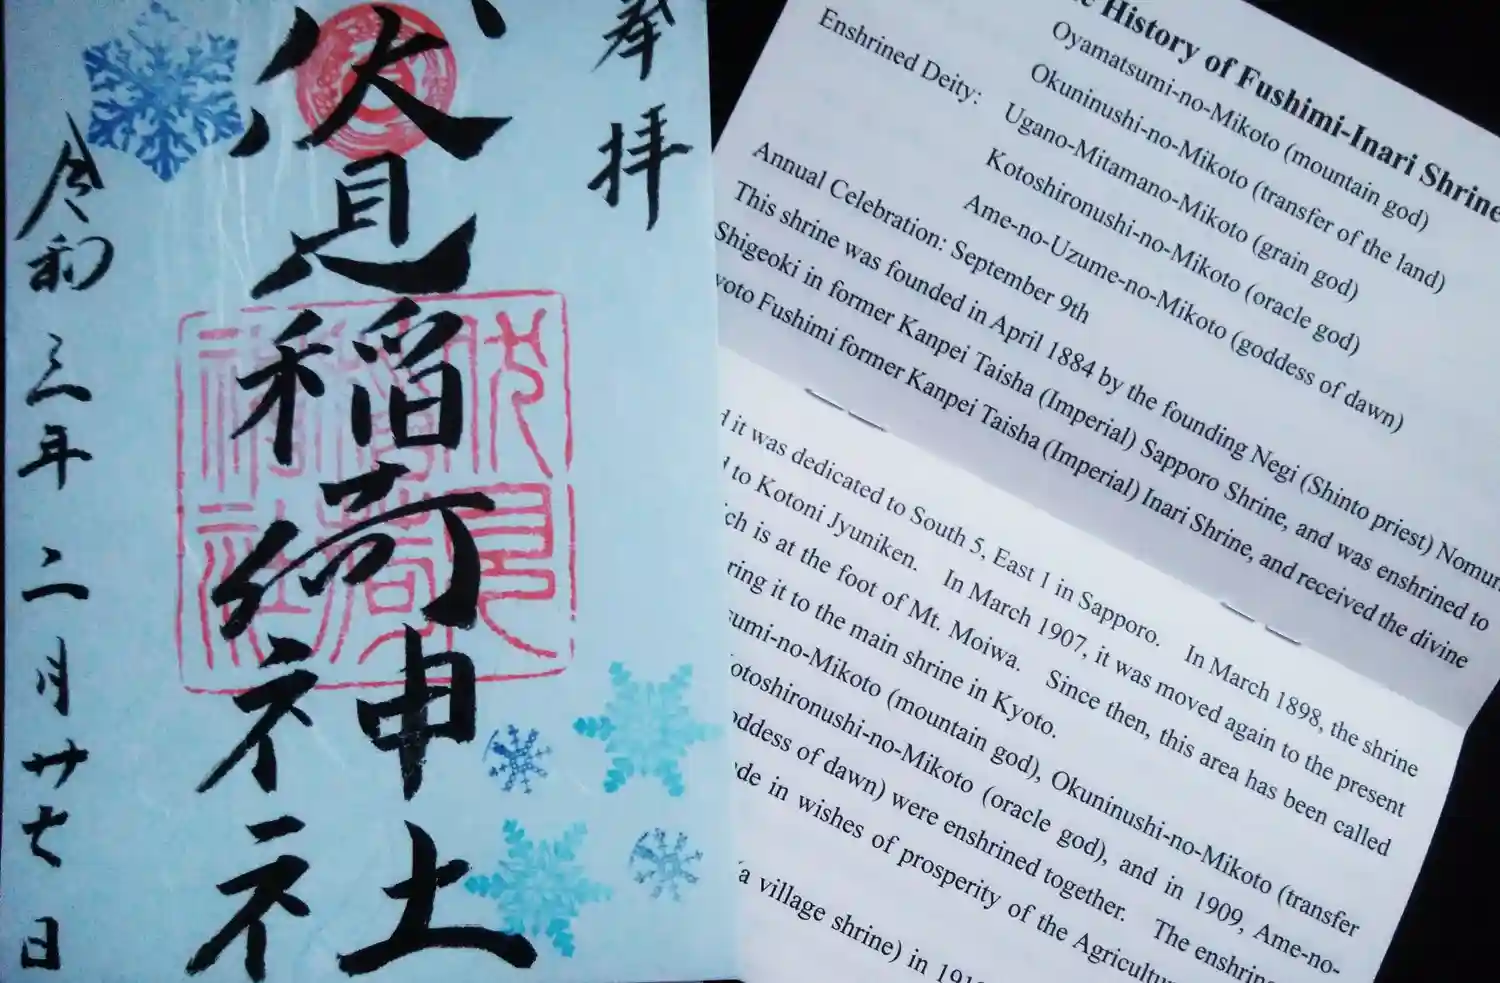 奉拝
伏見稲荷神社
伏見
稲荷
神社
令和三年二月廿七日
History of Fushimi-Inari Shrine
Enshrined Deity: Oyamatsumi-no-Mikoto (mountain god)
Okuninushi-no-Mikoto (transfer of the land)
Ugano-Mitamano-Mikoto (grain god)
Kotoshironushi-no-Mikoto (oracle god)
Ame-no-Uzume-no-Mikoto (goddess of dawn)
Annual Celebration: September 9th
This shrine was founded in April 1884 by the founding Negi (Shinto priest) Nomur
Shigeoki in former Kanpei Taisha (Imperial) Sapporo Shrine, and was enshrined to
yoto Fushimi former Kanpei Taisha (Imperial) Inari Shrine, and received the divine
d it was dedicated to South 5, East 1 in Sapporo. In March 1898, the shrine
d to Kotoni Jyuniken. In March 1907, it was moved again to the present
ch is at the foot of Mt. Moiwa. Since then, this area has been called
ring it to the main shrine in Kyoto.
sumi-no-Mikoto (mountain god), Okuninushi-no-Mikoto (transfer
otoshironushi-no-Mikoto (oracle god), and in 1909, Ame-no-
oddess of dawn) were enshrined together. The enshrine
de in wishes of prosperity of the Agricultu
a village shrine) in 191